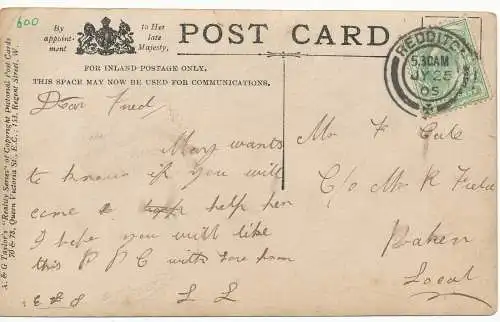 600
By
appoint-
ment
to Her
late
Majesty.
POST CARD
FOR INLAND POSTAGE ONLY.
THIS SPACE MAY NOW BE USED FOR COMMUNICATIONS.
A. & G. Taylor's "Reality Series" of Copyright Pictorial Post Cards
70 & 78, Queen Victoria St., E.C.; 153, Regent Street, W.
REDDITCH
5.30AM
JY 25
05
Dear Fred
Mary wants
to know if you will
come & help her
I hope you will like
this P P C with love from
L L
Mr F
C/o Mr R Field
Baker
Local